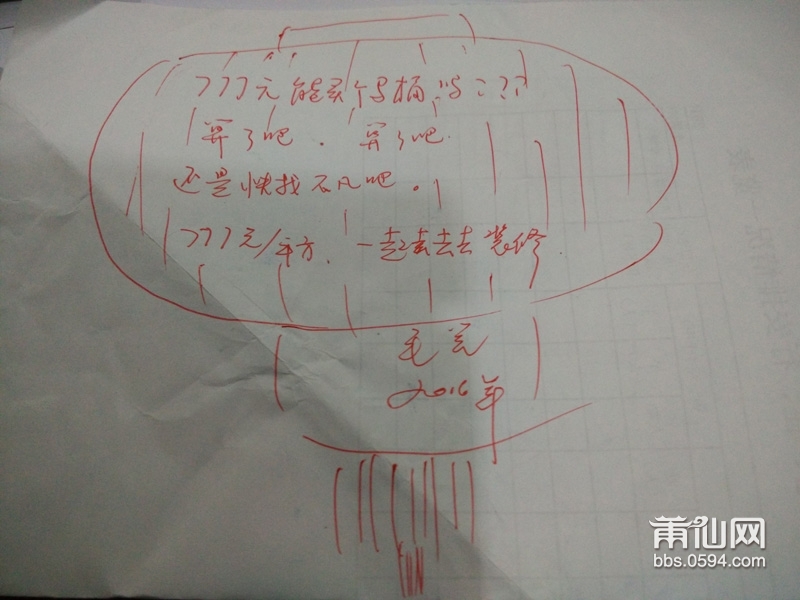 777元能买个马桶吗???
算了吧.算了吧.
还是快找不凡吧。
777元/平方.一起去去去装修.
毛
2016年
莆仙网
bbs.0594.com